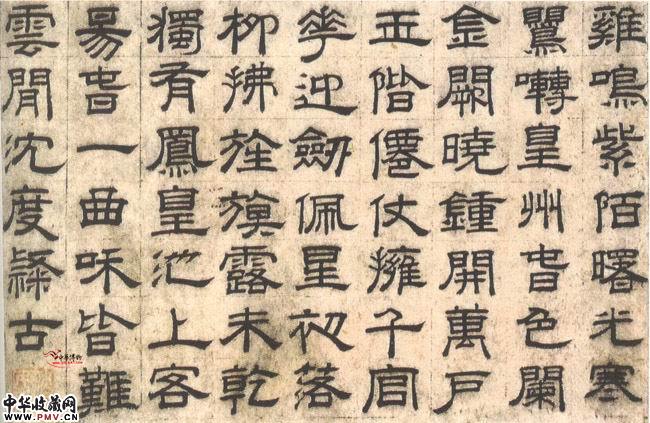 雞鳴紫陌曙光寒
鸎囀皇州旾色闌
金闕曉鍾開萬戶
玉階僊仗擁千官
華迎劒佩星初落
柳拂旌旗露未乾
獨有鳳皇池上客
昜旾一曲咊皆難
雲閒沈度隸古
中华收藏网
WWW.PMV.CN